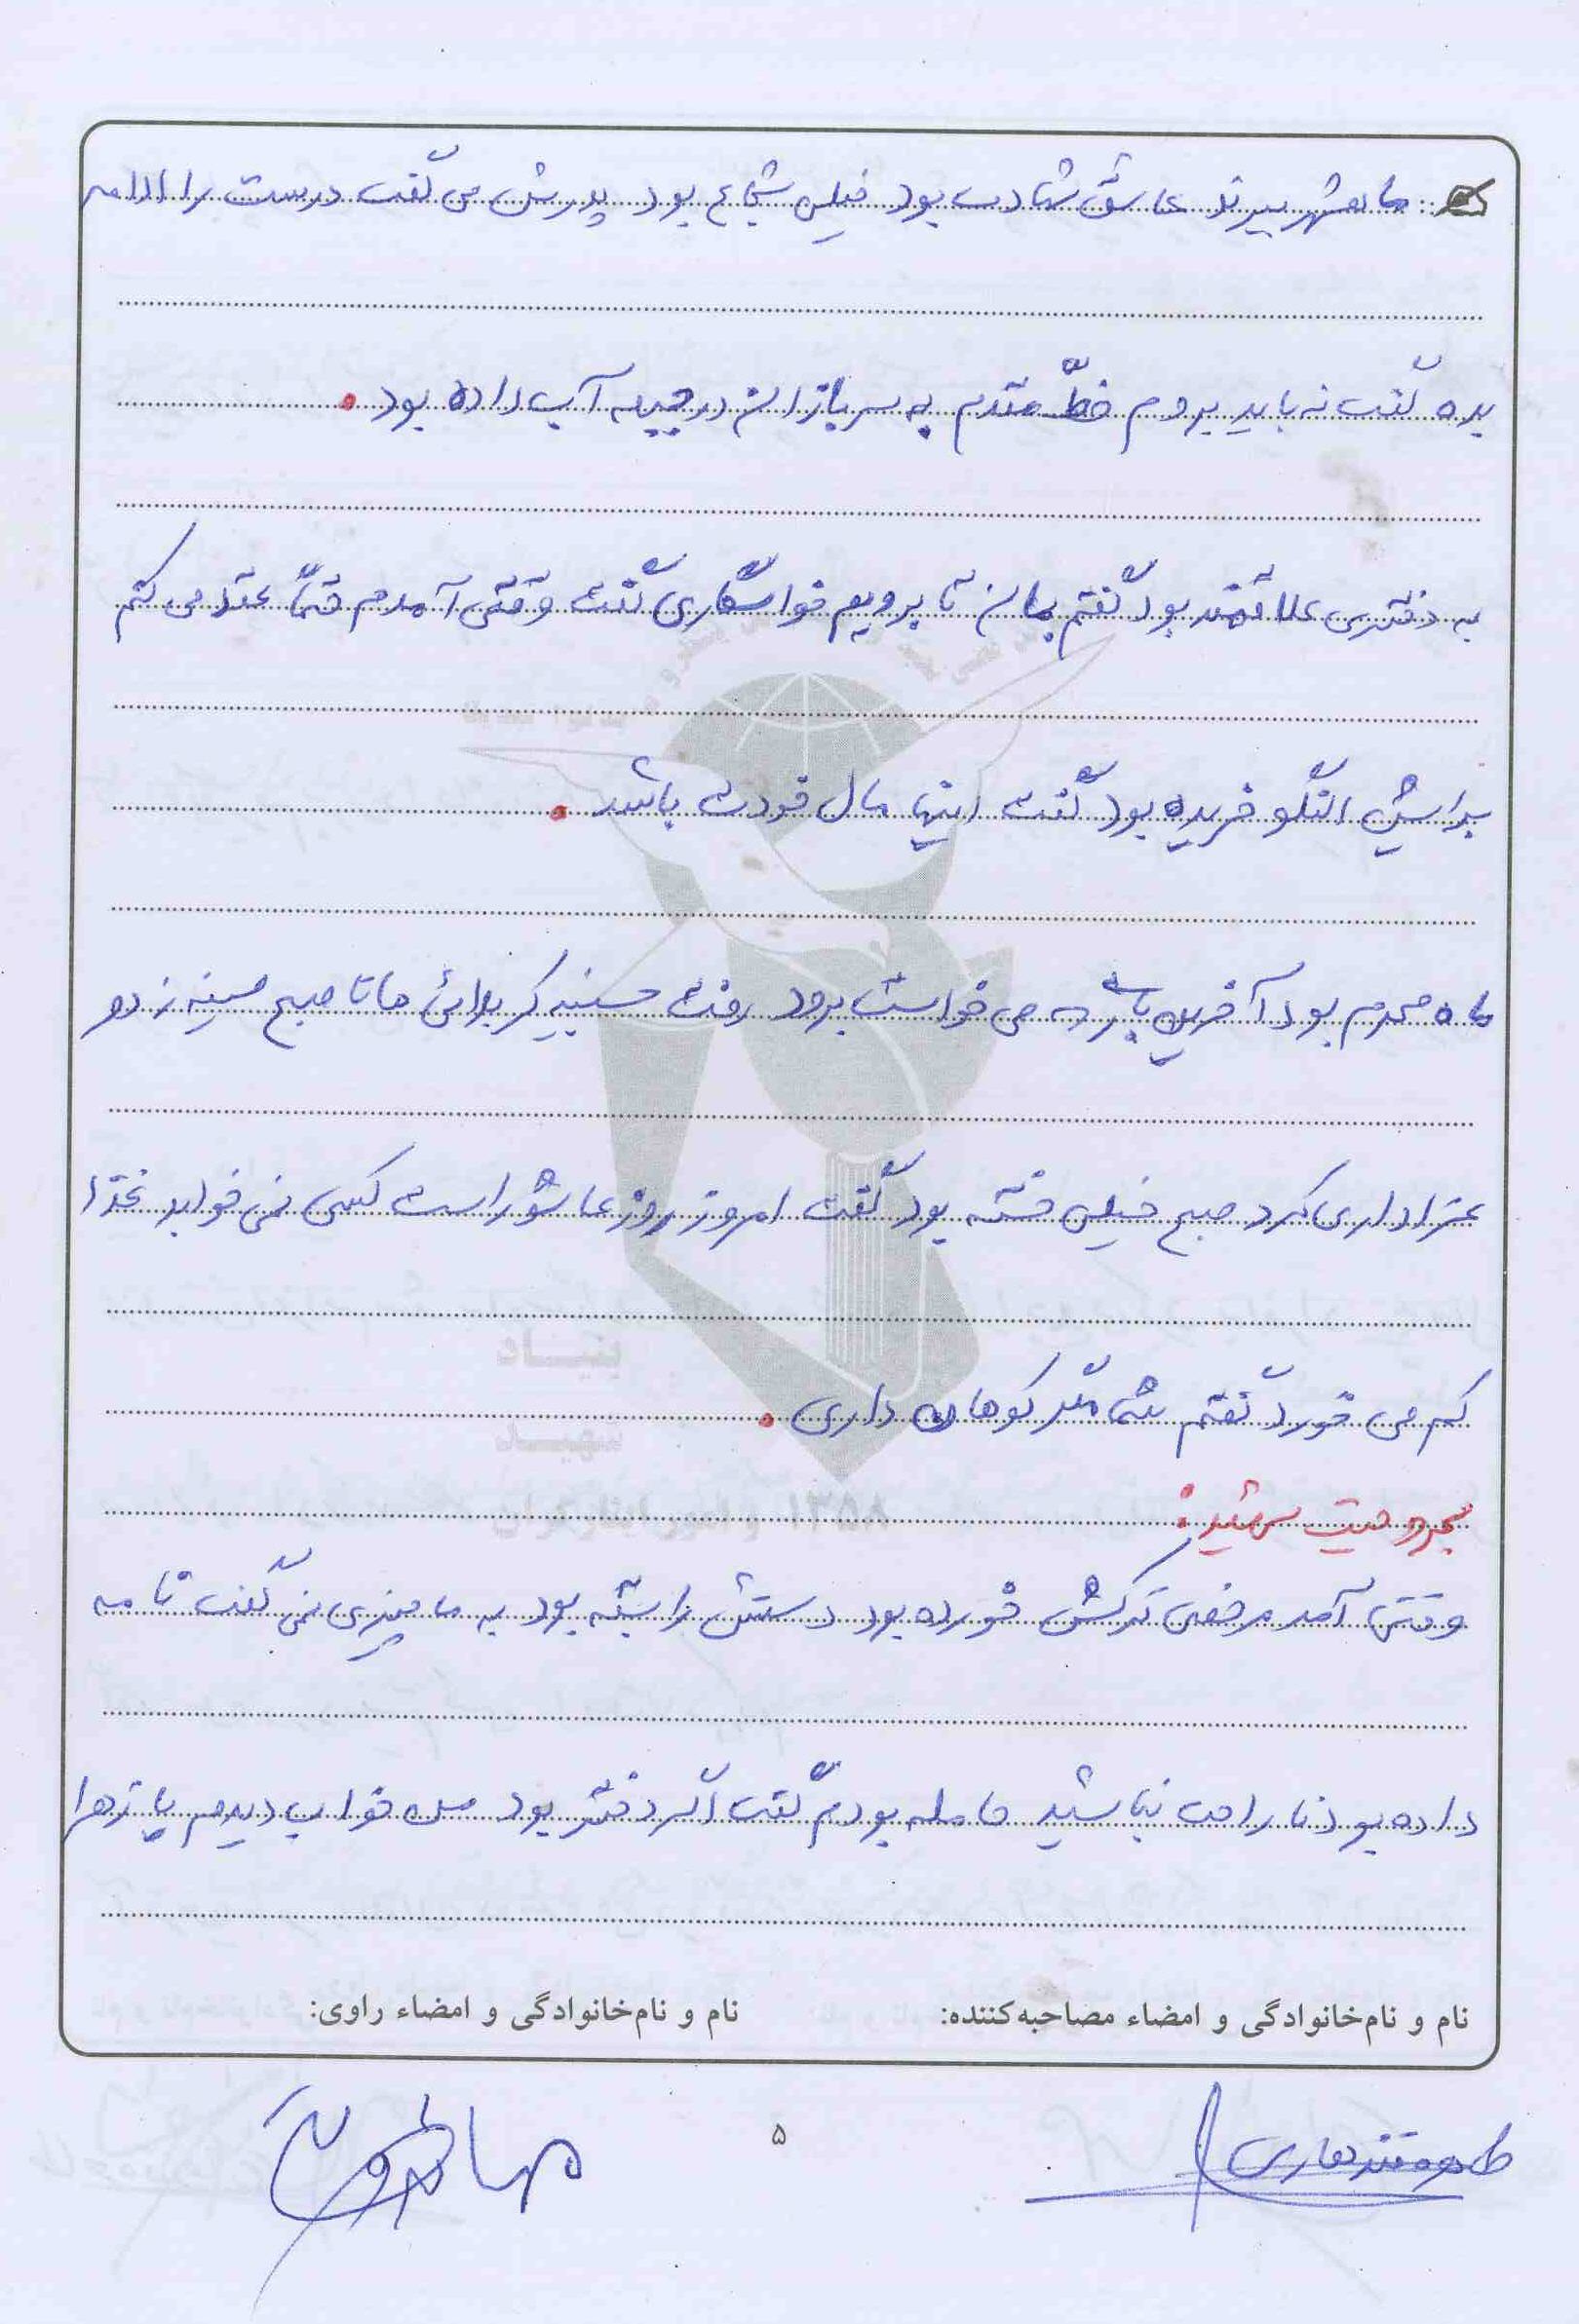 ماهشهر ببرند عاشق شهادت بود خیلی شجاع بود پدرش می گفت درست را ادامه
بده گفت نه باید بروم خطّ مقدم به سربازان در جبهه آب داده بود.
به دختری علاقمند بود گفتم بمان تا برویم خواستگاری گفت وقتی آمدم حتماً عقد می کنم
برایش النگو خریده بود گفت اینها مال خودت باشد.
ماه محرم بود آخرین باری که می خواست برود رفت حسینیه کربلائی ها تا صبح سینه زد و
عزاداری کرد صبح خیلی خسته بود گفت امروز روز عاشوراست کسی نمی خوابد غذا
کم می خورد گفتم شما مگر کوهان داری.
مجروحیت شهید:
وقتی آمد مرخصی ترکش خورده بود دستش را بسته بود به ما چیزی نمی گفت نامه
داده بود ناراحت نباشید حامله بودم گفت اگر دختر بود من خواب دیدم یا زهرا
نام و نام‌خانوادگی و امضاء مصاحبه‌کننده: نام و نام‌خانوادگی و امضاء راوی:
۵
بنیاد
شهید
و امور ایثارگران ۱۳۵۸